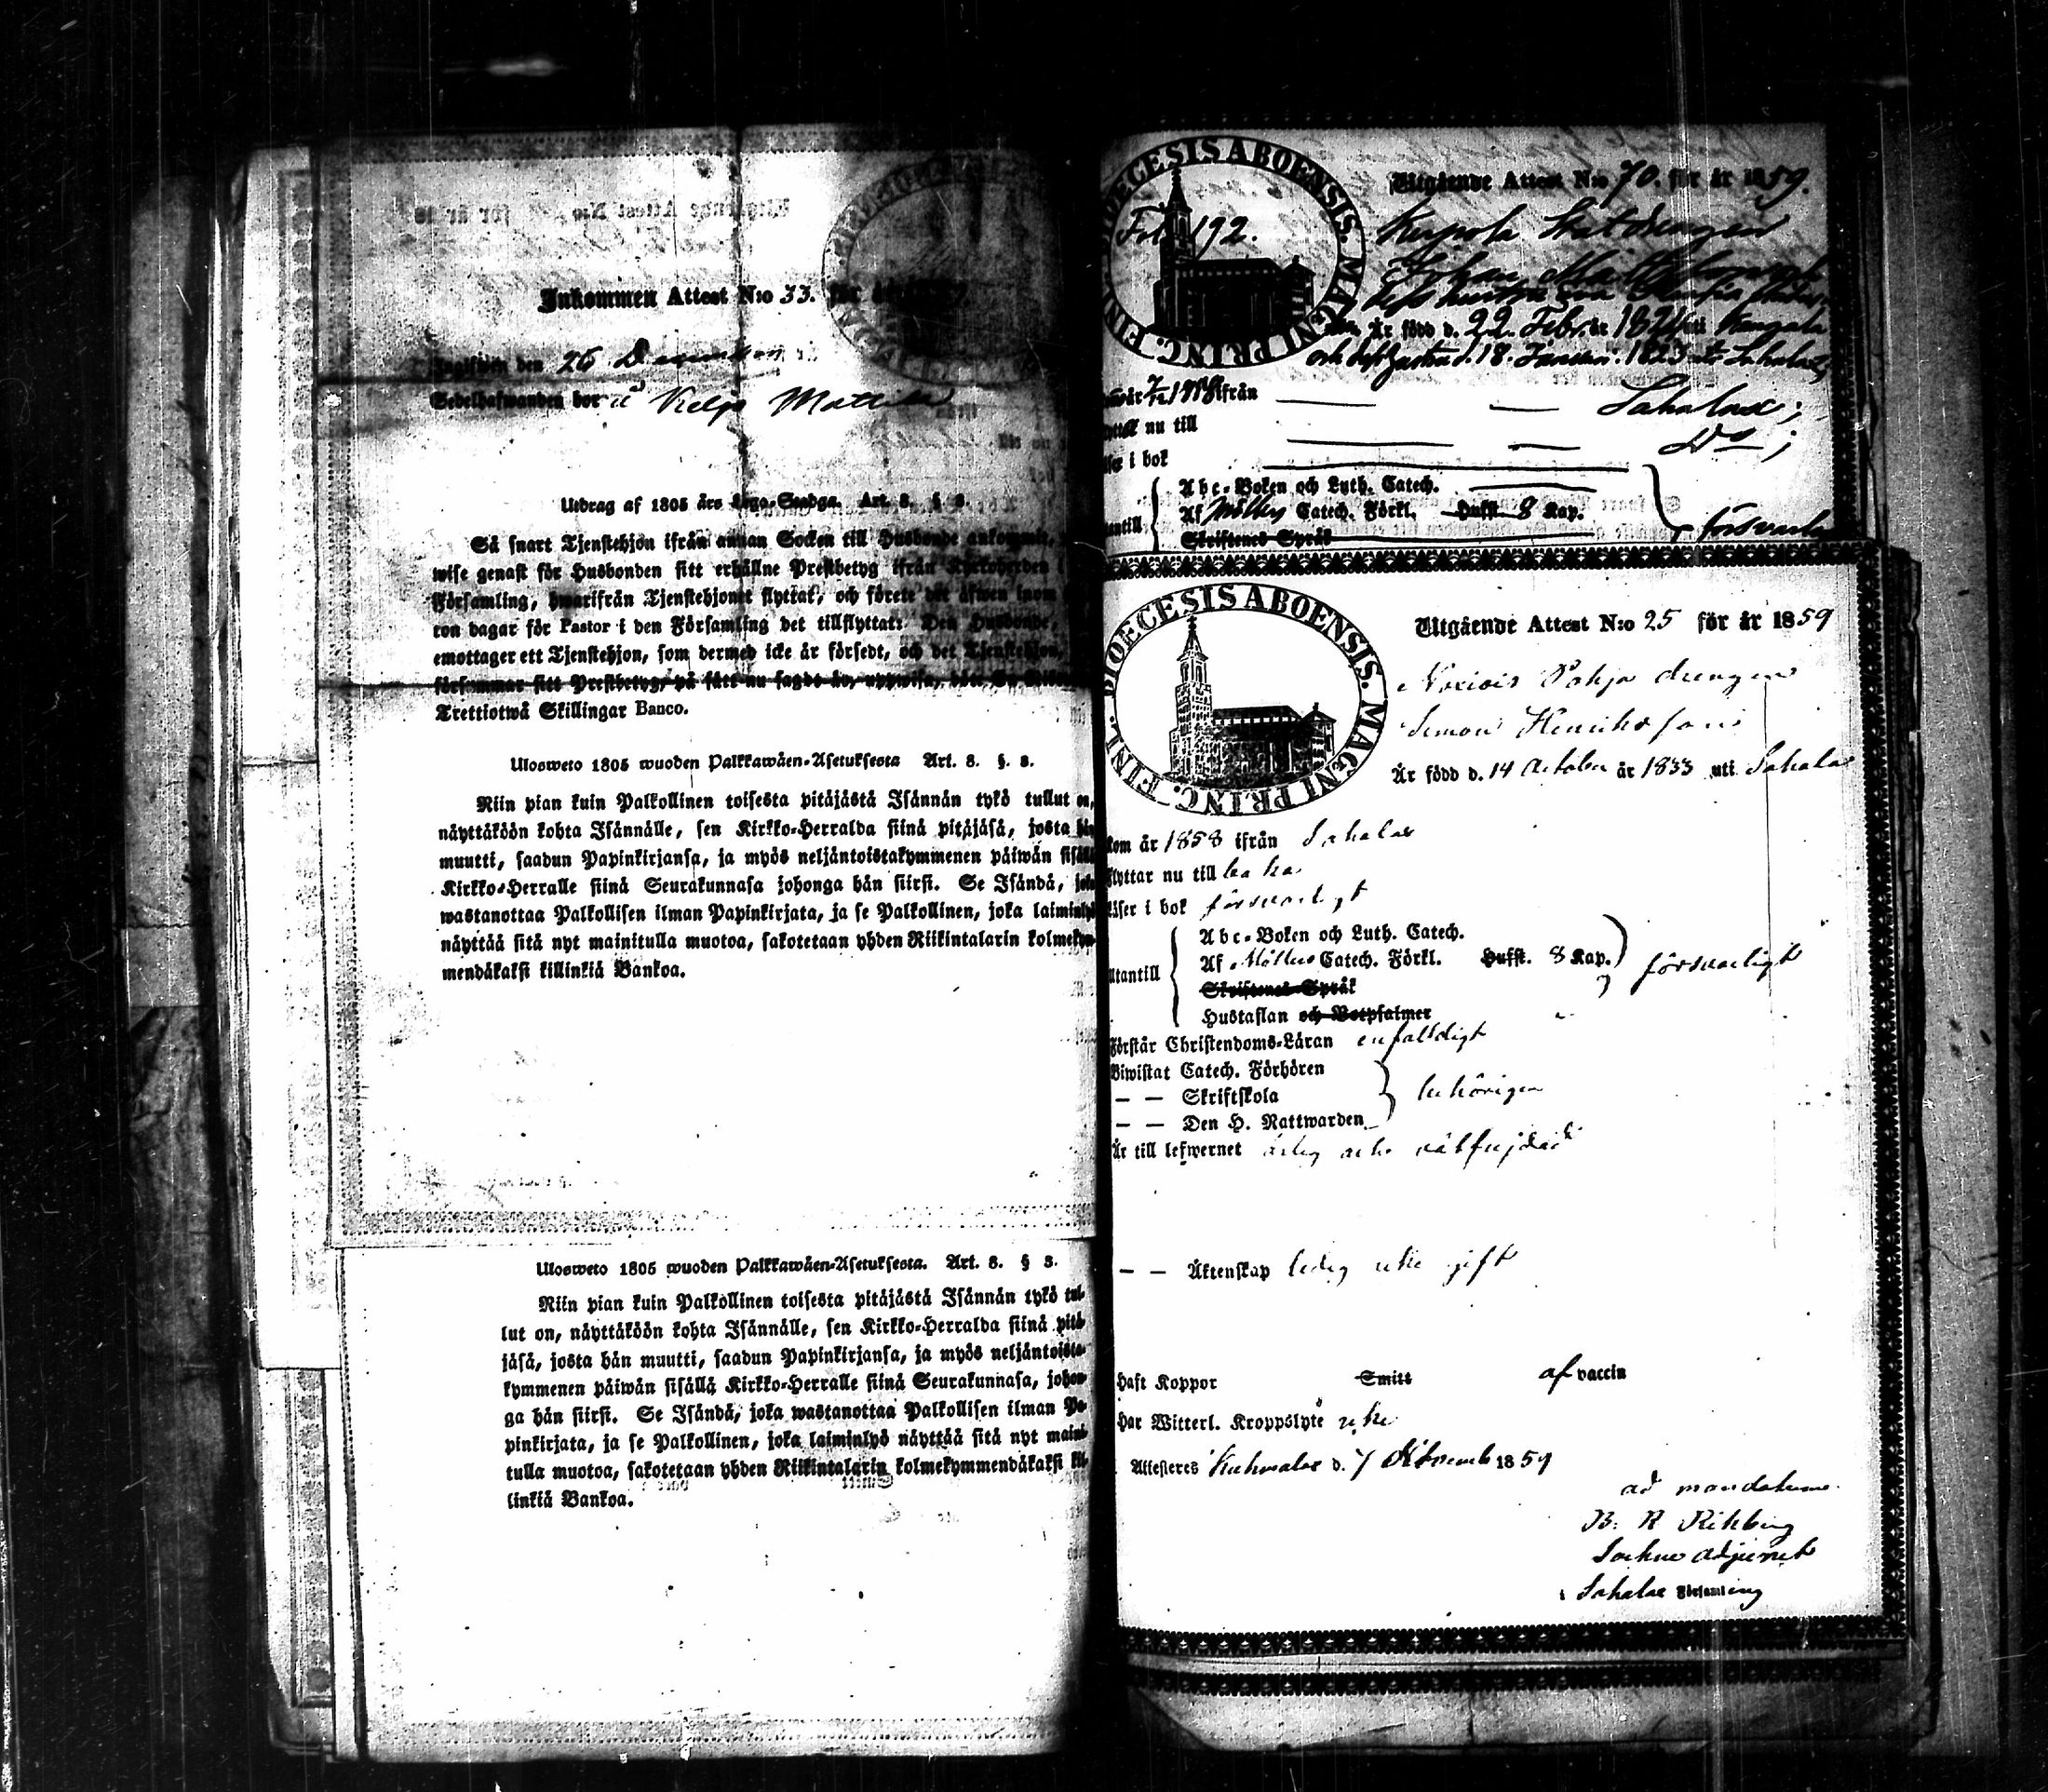 Inkommen Attest N:o 33. för år
Ingifwen den 26 December
Sedelhafwanden bor i Keljo Mattila
Utdrag af 1805 års Lego-Stadga. Art. 8. § 3.
Så snart Tjenstehjon ifrån annan Socken till Husbonde ankommit,
wise genast för Husbonden sitt erhållne Prestbetyg ifrån Kyrkoherden i
Församling, hwarifrån Tjenstehjonet flyttat, och förete det äfwen inom
ton dagar för Pastor i den Församling det tillflyttat: Den Husbonde,
emottager ett Tjenstehjon, som dermed icke är försedt, och det Tjenstehjon,
försummar sitt Prestbetyg, på sätt nu sagdt är, uppwisa, böte En Riksd
Trettiotwå Skillingar Banco.
Ulosweto 1805 wuoden Palkkawäen-Asetuksesta Art. 8. §. 3.
Niin pian kuin Palkollinen toisesta pitäjästä Isännän tykö tullut on,
näyttäköön kohta Isännälle, sen Kirkko-Herralda siinä pitäjäsä, josta hän
muutti, saadun Papinkirjansa, ja myös neljäntoistakymmenen päiwän sisällä
Kirkko-Herralle siinä Seurakunnasa johonga hän siirsi. Se Isändä, joka
wastanottaa Palkollisen ilman Papinkirjata, ja se Palkollinen, joka laiminlyö
näyttää sitä nyt mainitulla muotoa, sakotetaan yhden Riikintalarin kolmekym-
mendäkaksi killinkiä Bankoa.
Ulosweto 1805 wuoden Palkkawäen-Asetuksesta. Art. 8. § 3.
Niin pian kuin Palkollinen toisesta pitäjästä Isännän tykö tul-
lut on, näyttäköön kohta Isännälle, sen Kirkko-Herralda siinä pitä-
jäsä, josta hän muutti, saadun Papinkirjansa, ja myös neljäntoista-
kymmenen päiwän sisällä Kirkko-Herralle siinä Seurakunnasa, johon-
ga hän siirsi. Se Isändä, joka wastanottaa Palkollisen ilman Pa-
pinkirjata, ja se Palkollinen, joka laiminlyö näyttää sitä nyt maini-
tulla muotoa, sakotetaan yhden Riikintalarin kolmekymmendäkaksi kil-
linkiä Bankoa.
DIOECESIS ABOENSIS. MAGNI PRINC. FINL.
Fol 192.
Utgående Attest N:o 70. för år 1859.
Johan
är född d. 22. Febr. år 1824 uti Kangala
och d. 18. Januari 1823 uti Sahalax
ifrån Sahalax;
nu till Do;
i bok
Abc-Boken och Luth. Catech.
Utantill Af Möllers Catech. Förkl. Husst. 8 Kap. försvarl
Skriftenes Språk
DIOECESIS ABOENSIS. MAGNI PRINC. FINL.
Utgående Attest N:o 25 för år 1859
Pohja drengen
Simon Henriksson
Är född d. 14 October år 1833 uti Sahalax
kom år 1858 ifrån Sahalax
flyttar nu till
läser i bok försvarligt
Abc-Boken och Luth. Catech.
Utantill Af Möllers Catech. Förkl. Husst. 8 Kap. försvarligt
Skriftenes Språk
Hustaflan och Botpsalmer
Förstår Christendoms-Läran enfaldigt
Biwistat Catech. Förhören
— — Skriftskola behörigen
— — Den H. Nattwarden
Är till lefwernet ärlig och välfrejdad
— — Äktenskap ledig icke gift
Haft Koppor Smitt af vaccin
Har Witterl. Kroppslyte icke
Attesteras Kuhmalax d. 7 Novemb 1859
ad mandatum
B. R.
Sockne Adjunct
i Sahalax Församling